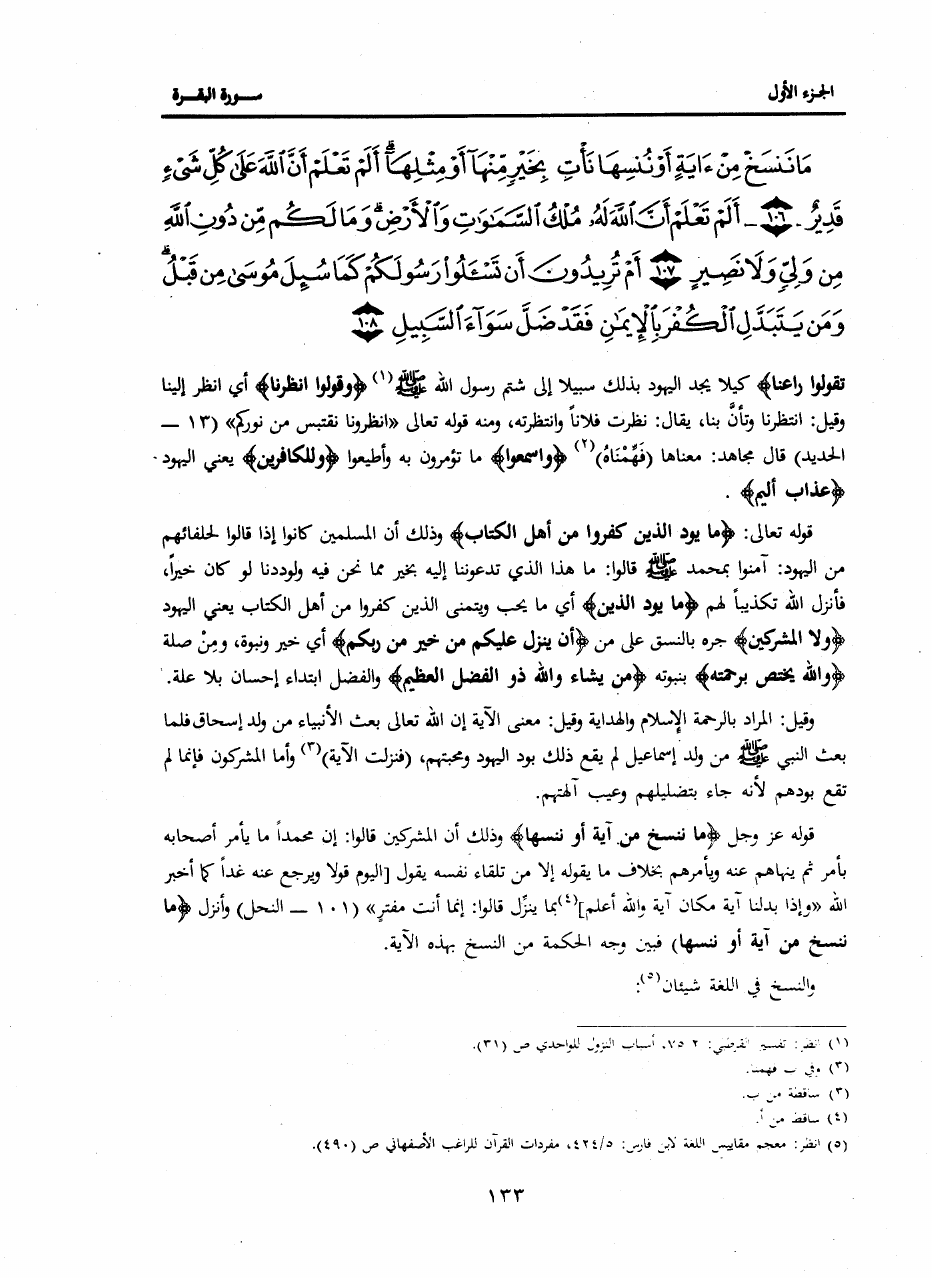 الجزء الأول
ســورة البقــرة
مَا نَنسَخْ مِنْ ءَايَةٍ أَوْ نُنسِهَا نَأْتِ بِخَيْرٍ مِّنْهَآ أَوْ مِثْلِهَآ ۗ أَلَمْ تَعْلَمْ أَنَّ ٱللَّهَ عَلَىٰ كُلِّ شَىْءٍ
قَدِيرٌ ١٠٦ أَلَمْ تَعْلَمْ أَنَّ ٱللَّهَ لَهُۥ مُلْكُ ٱلسَّمَٰوَٰتِ وَٱلْأَرْضِ ۗ وَمَا لَكُم مِّن دُونِ ٱللَّهِ
مِن وَلِىٍّ وَلَا نَصِيرٍ ١٠٧ أَمْ تُرِيدُونَ أَن تَسْـَٔلُوا۟ رَسُولَكُمْ كَمَا سُئِلَ مُوسَىٰ مِن قَبْلُ ۗ
وَمَن يَتَبَدَّلِ ٱلْكُفْرَ بِٱلْإِيمَٰنِ فَقَدْ ضَلَّ سَوَآءَ ٱلسَّبِيلِ ١٠٨
تقولوا راعنا﴾ كيلا يجد اليهود بذلك سبيلا إلى شتم رسول الله ﷺ(١) ﴿وقولوا انظرنا﴾ أي انظر إلينا
وقيل: انتظرنا وتأنَّ بنا، يقال: نظرت فلاناً وانتظرته، ومنه قوله تعالى «انظرونا نقتبس من نوركم» (١٣ —
الحديد) قال مجاهد: معناها (فَهِّمْنَاهُ)(٢) ﴿واسمعوا﴾ ما تؤمرون به وأطيعوا ﴿وللكافرين﴾ يعني اليهود
﴿عذاب أليم﴾ .
قوله تعالى: ﴿ما يود الذين كفروا من أهل الكتاب﴾ وذلك أن المسلمين كانوا إذا قالوا لحلفائهم
من اليهود: آمنوا بمحمد ﷺ قالوا: ما هذا الذي تدعوننا إليه بخير مما نحن فيه ولوددنا لو كان خيراً،
فأنزل الله تكذيباً لهم ﴿ما يود الذين﴾ أي ما يحب ويتمنى الذين كفروا من أهل الكتاب يعني اليهود
﴿ولا المشركين﴾ جره بالنسق على من ﴿أن ينزل عليكم من خير من ربكم﴾ أي خير ونبوة، ومِنْ صلة
﴿والله يختص برحمته﴾ بنبوته ﴿من يشاء والله ذو الفضل العظيم﴾ والفضل ابتداء إحسان بلا علة.
وقيل: المراد بالرحمة الإسلام والهداية وقيل: معنى الآية إن الله تعالى بعث الأنبياء من ولد إسحاق فلما
بعث النبي ﷺ من ولد إسماعيل لم يقع ذلك بود اليهود ومحبتهم، (فنزلت الآية)(٣) وأما المشركون فإنما لم
تقع بودهم لأنه جاء بتضليلهم وعيب آلهتهم.
قوله عز وجل ﴿ما ننسخ من آية أو ننسها﴾ وذلك أن المشركين قالوا: إن محمداً ما يأمر أصحابه
بأمر ثم ينهاهم عنه ويأمرهم بخلاف ما يقوله إلا من تلقاء نفسه يقول [اليوم قولا ويرجع عنه غداً كما أخبر
الله «وإذا بدلنا آية مكان آية والله أعلم](٤)بما ينزِّل قالوا: إنما أنت مفترٍ» (١٠١ — النحل) وأنزل ﴿ما
ننسخ من آية أو ننسها) فبين وجه الحكمة من النسخ بهذه الآية.
والنسخ في اللغة شيئان(٥):
(١) انظر: تفسير القرطبي: ٢ ٥٧، أسباب النزول للواحدي ص (٣١).
(٣) وفي ب فهمنا.
(٣) ساقطة من ب.
(٤) ساقط من أ.
(٥) انظر: معجم مقاييس اللغة لابن فارس: ٤٢٤/٥، مفردات القرآن للراغب الأصفهاني ص (٤٩٠).
١٣٣